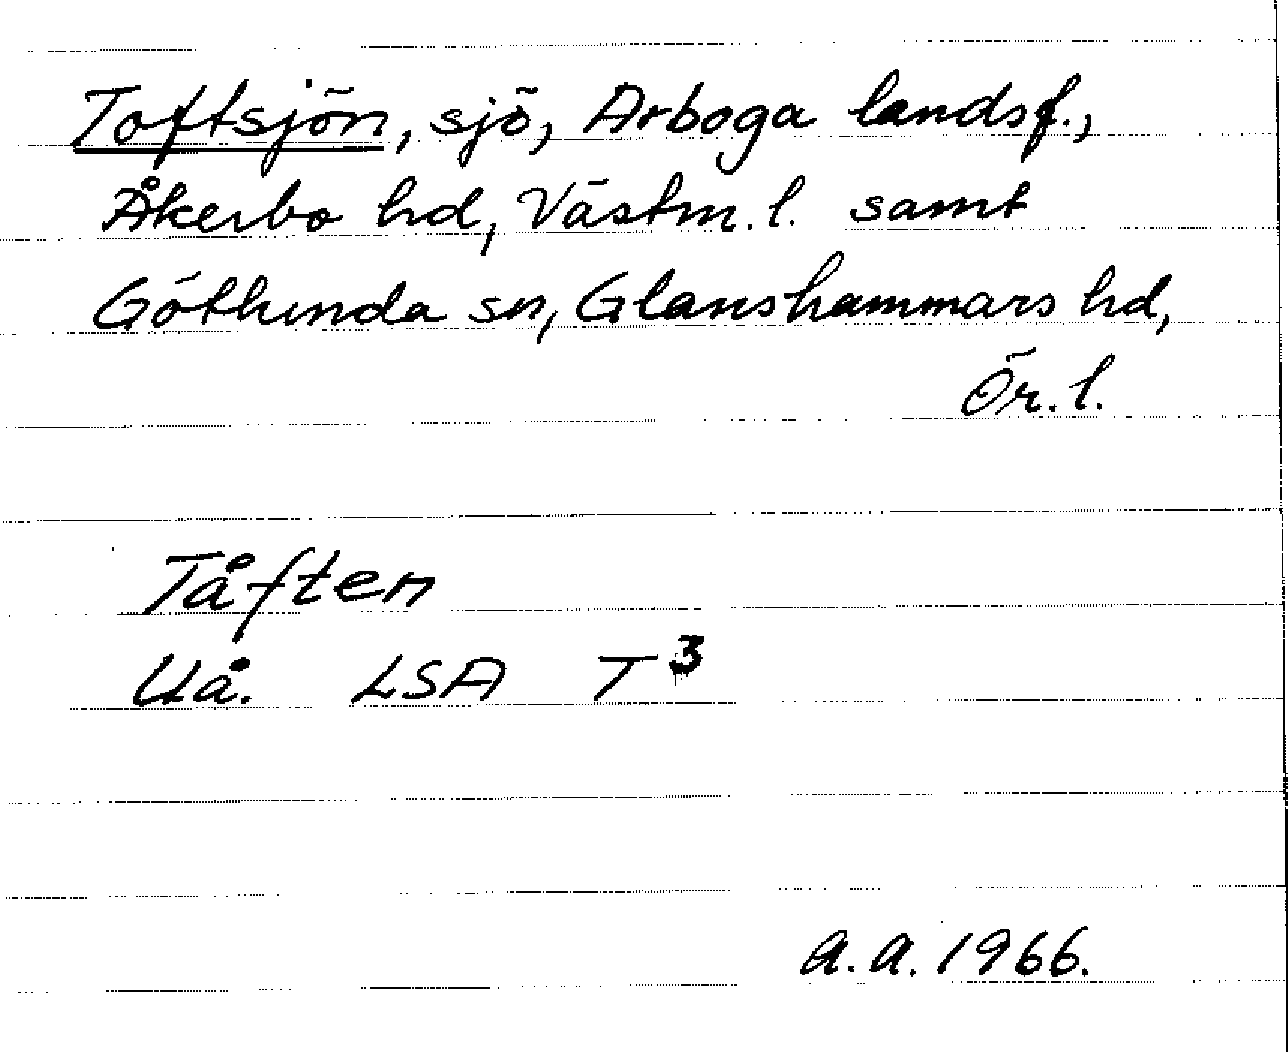 Toftsjön, sjö, Arboga landsf.,
Åkerbo hd, Västm. l. samt
Götlunda sn, Glanshammars hd,
Ör. l.
Tåften
Uå. LSA T³
A.A. 1966.